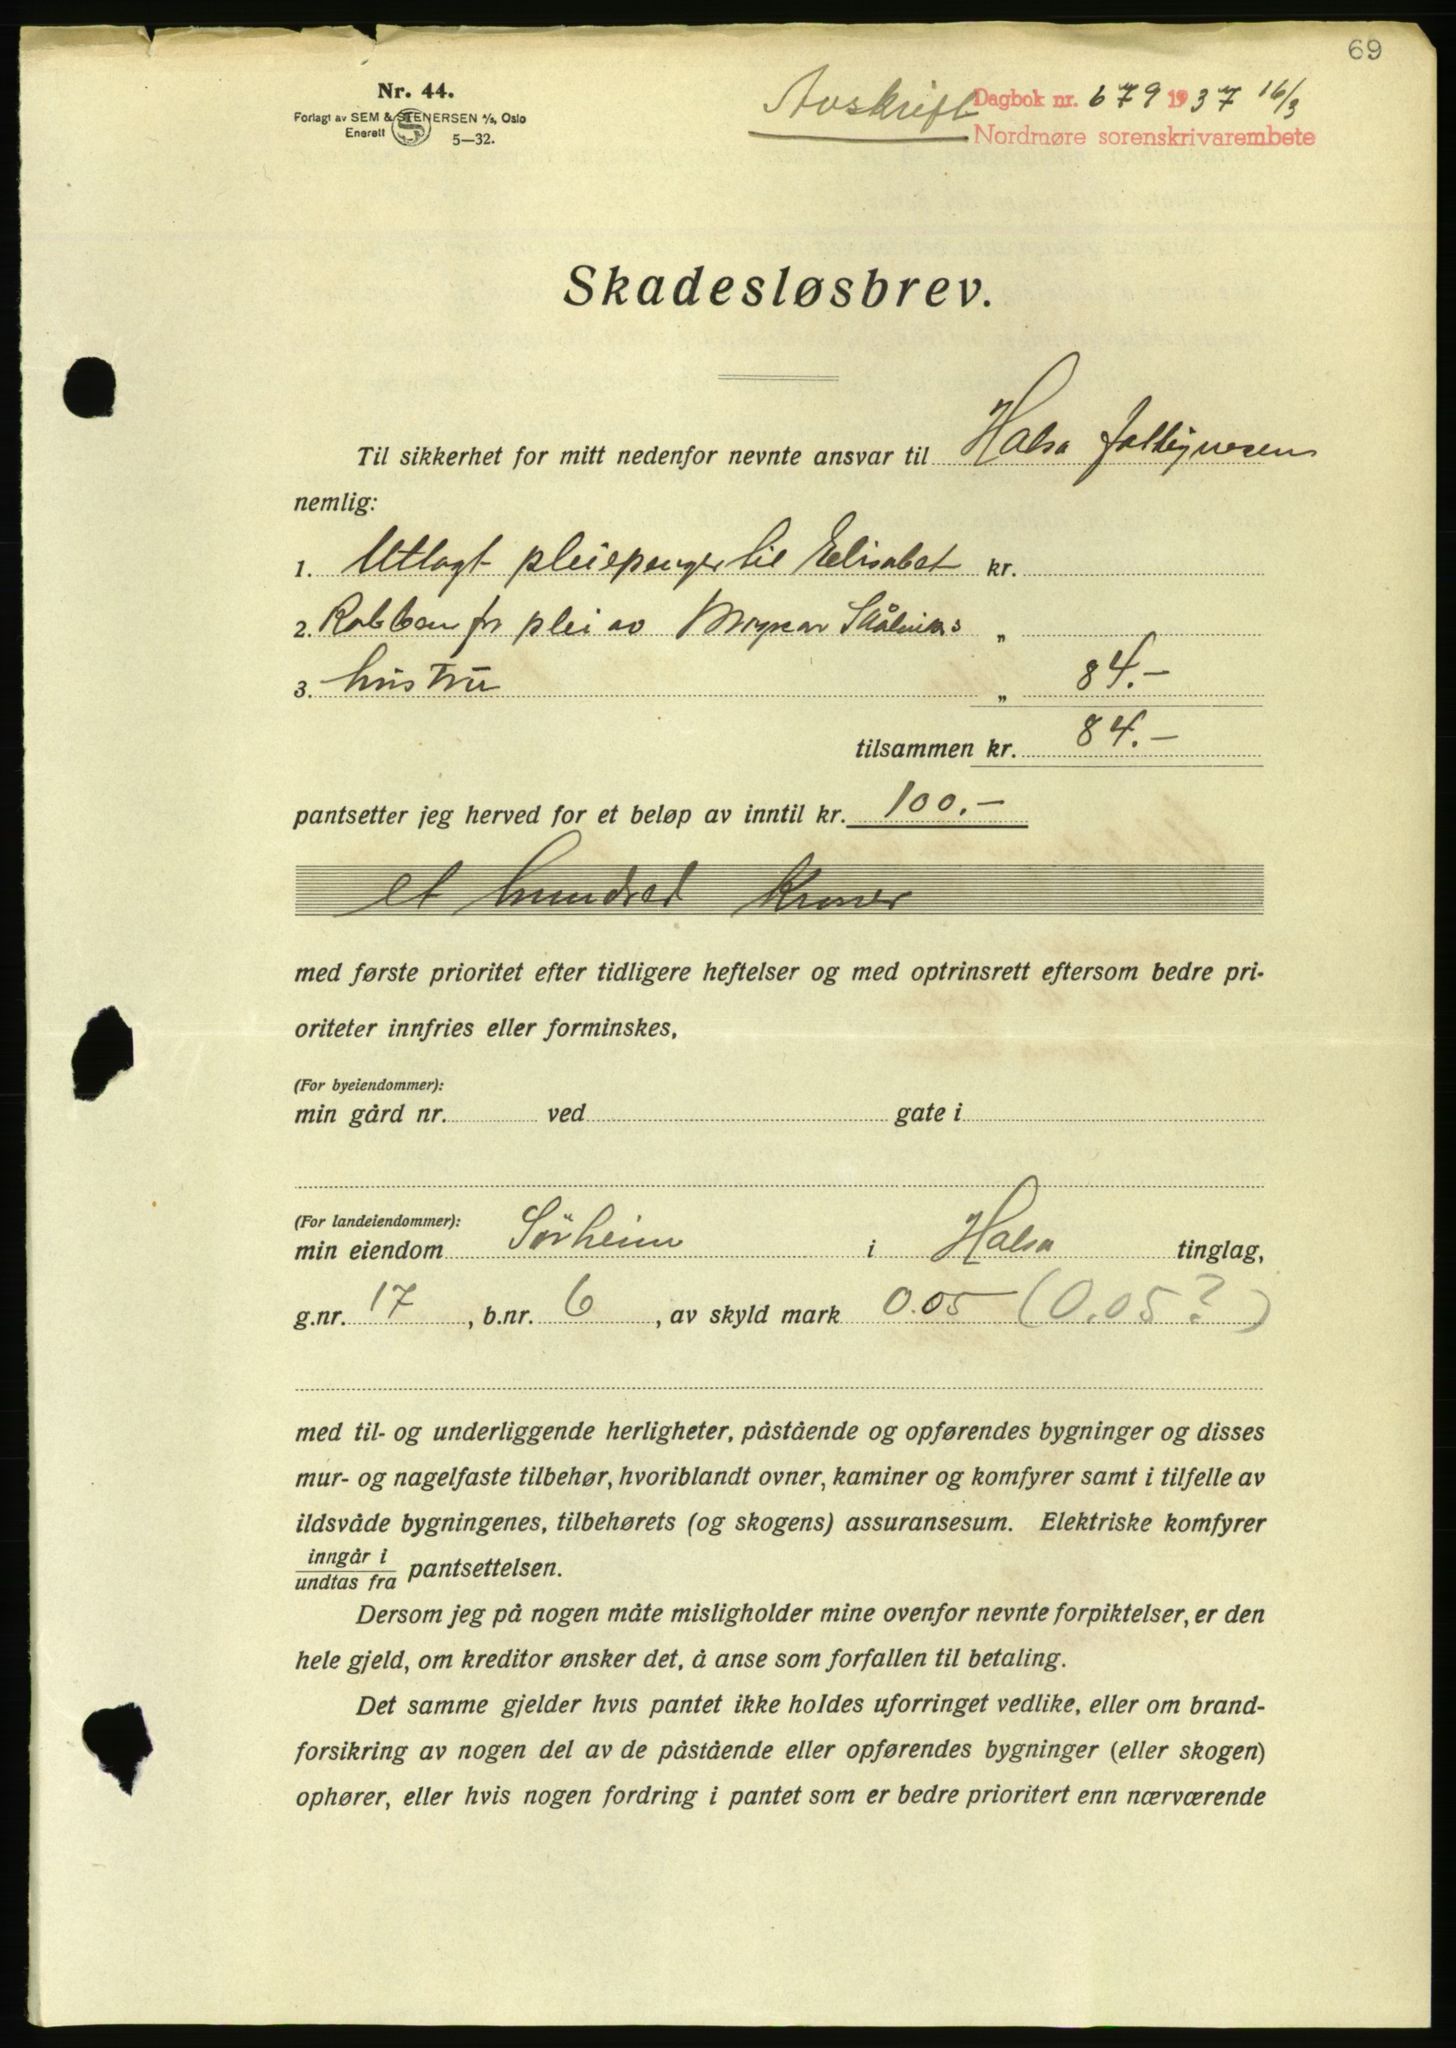 69
Nr. 44.
Forlagt av SEM & STENERSEN A/S, Oslo
Enerett
S
5—32.
Avskrift
Dagbok nr. 679 1937 16/3
Nordmøre sorenskrivarembete
Skadesløsbrev.
Til sikkerhet for mitt nedenfor nevnte ansvar til Halsa fattigvesen
nemlig:
1. Utlagt pleiepenger til Elisabet kr.
2. Rabben for plei av Skålviks „
3. hustru „ 84.—
tilsammen kr. 84.—
pantsetter jeg herved for et beløp av inntil kr. 100.—
et hundred kroner
med første prioritet efter tidligere heftelser og med optrinsrett eftersom bedre pri-
oriteter innfries eller forminskes,
(For byeiendommer):
min gård nr. ved gate i
(For landeiendommer):
min eiendom Sörheim i Halsa tinglag,
g.nr. 17, b.nr. 6, av skyld mark 0.05 (0.05?)
med til- og underliggende herligheter, påstående og opførendes bygninger og disses
mur- og nagelfaste tilbehør, hvoriblandt ovner, kaminer og komfyrer samt i tilfelle av
ildsvåde bygningenes, tilbehørets (og skogens) assuransesum. Elektriske komfyrer
inngår i
undtas fra pantsettelsen.
Dersom jeg på nogen måte misligholder mine ovenfor nevnte forpiktelser, er den
hele gjeld, om kreditor ønsker det, å anse som forfallen til betaling.
Det samme gjelder hvis pantet ikke holdes uforringet vedlike, eller om brand-
forsikring av nogen del av de påstående eller opførendes bygninger (eller skogen)
ophører, eller hvis nogen fordring i pantet som er bedre prioritert enn nærværende